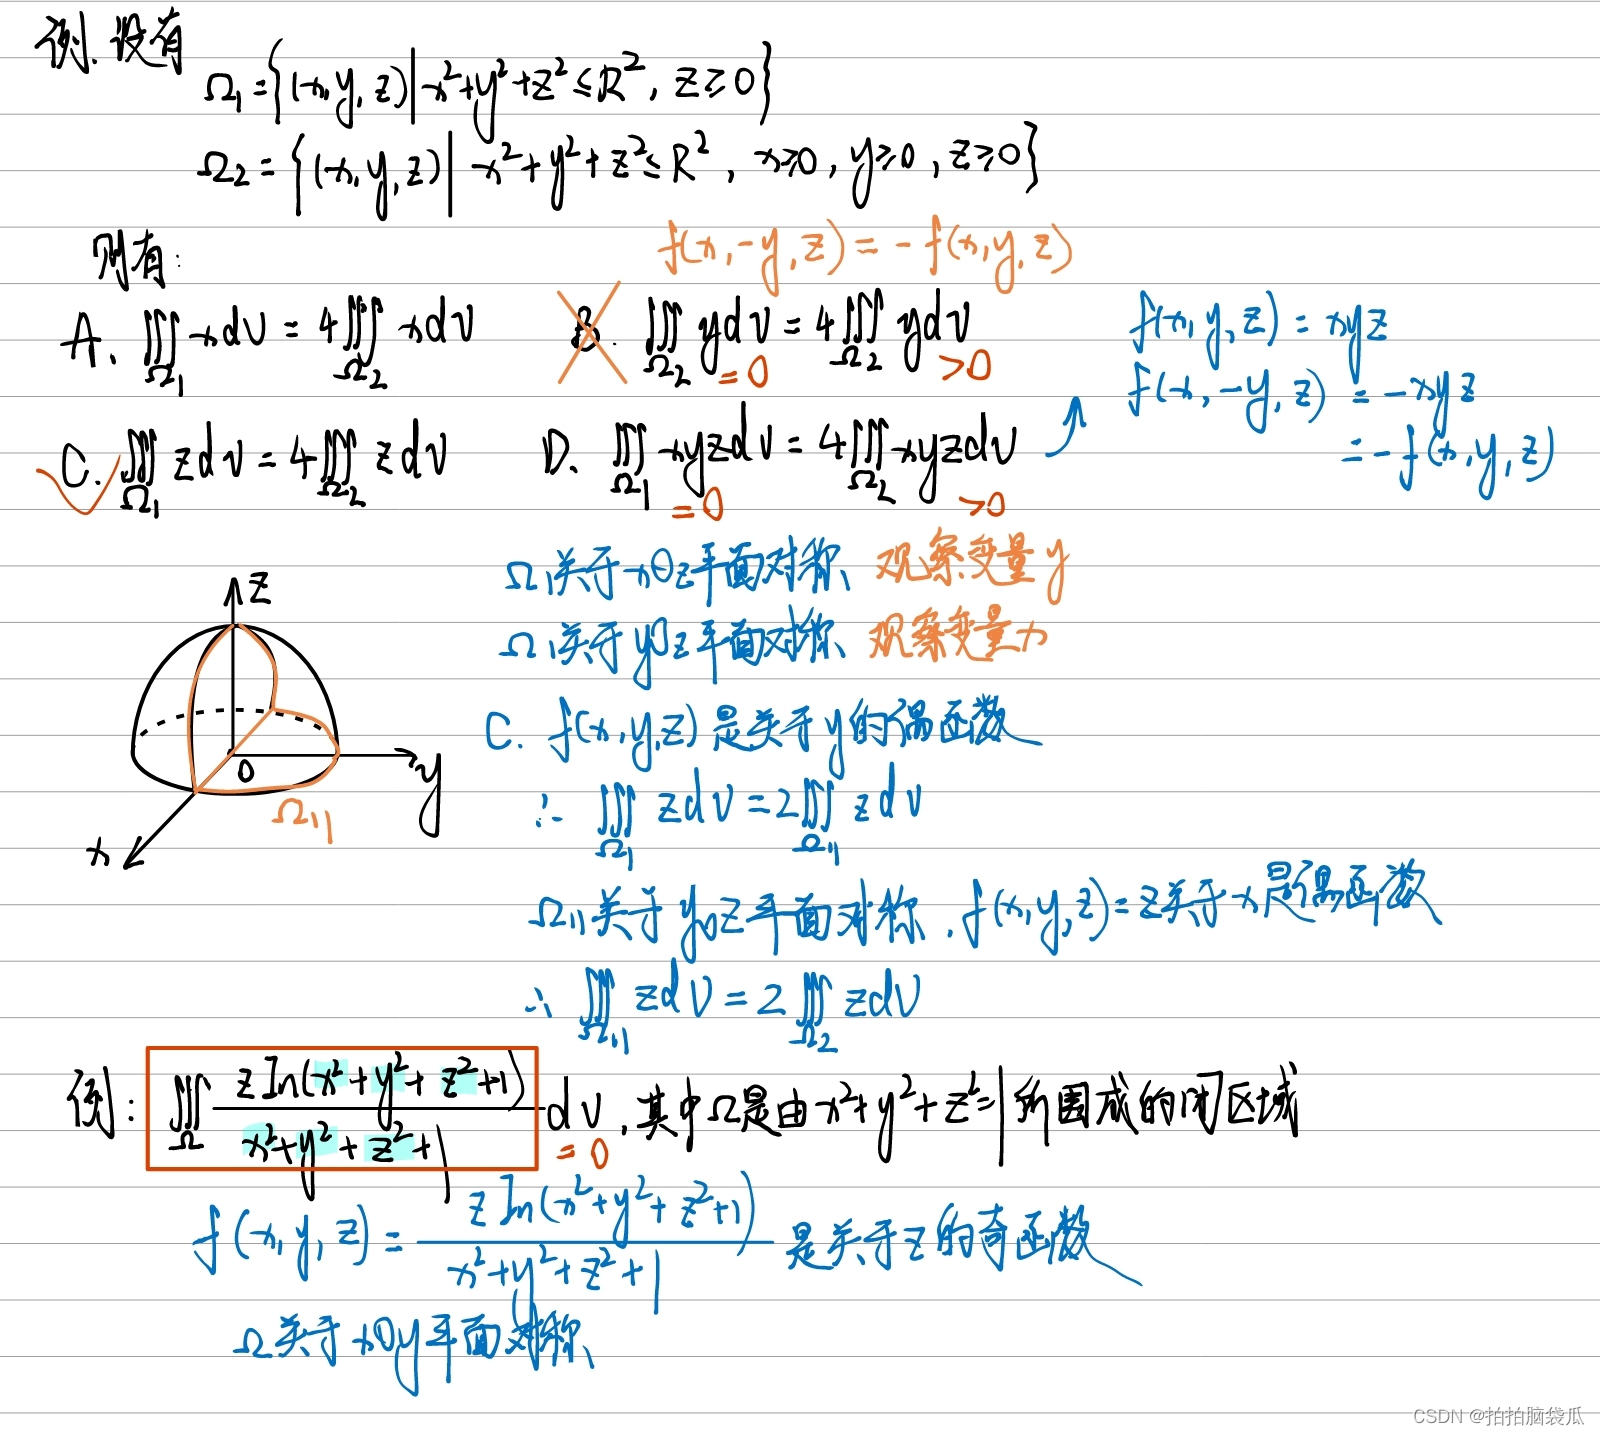 例. 设有
Ω₁ = {(x,y,z)|x²+y²+z²≤R², z≥0}
Ω₂ = {(x,y,z)| x²+y²+z²≤R², x≥0, y≥0, z≥0}
则有:
f(x,-y,z) = -f(x,y,z)
A. ∭_Ω₁ xdV = 4∭_Ω₂ xdV
B. ∭_Ω₂ ydV = 4∭_Ω₂ ydV
=0 >0
f(x,y,z) = xyz
f(x,-y,z) = -xyz
= -f(x,y,z)
C. ∭_Ω₁ zdV = 4∭_Ω₂ zdV
D. ∭_Ω₁ xyzdV = 4∭_Ω₂ xyzdV
=0 >0
Ω₁关于xOz平面对称 观察变量y
Ω₁关于yOz平面对称 观察变量x
z
O
y
x
Ω₁₁
C. f(x,y,z)是关于y的偶函数
∴ ∭_Ω₁ zdV = 2∭_Ω₁₁ zdV
Ω₁₁关于yOz平面对称, f(x,y,z)=z关于x是偶函数
∴ ∭_Ω₁₁ zdV = 2∭_Ω₂ zdV
例: ∭_Ω (z In(x²+y²+z²+1))/(x²+y²+z²+1) dV, 其中Ω是由x²+y²+z²=1所围成的闭区域
=0
f(x,y,z) = (z In(x²+y²+z²+1))/(x²+y²+z²+1) 是关于z的奇函数
Ω关于xOy平面对称
CSDN @拍拍脑袋瓜